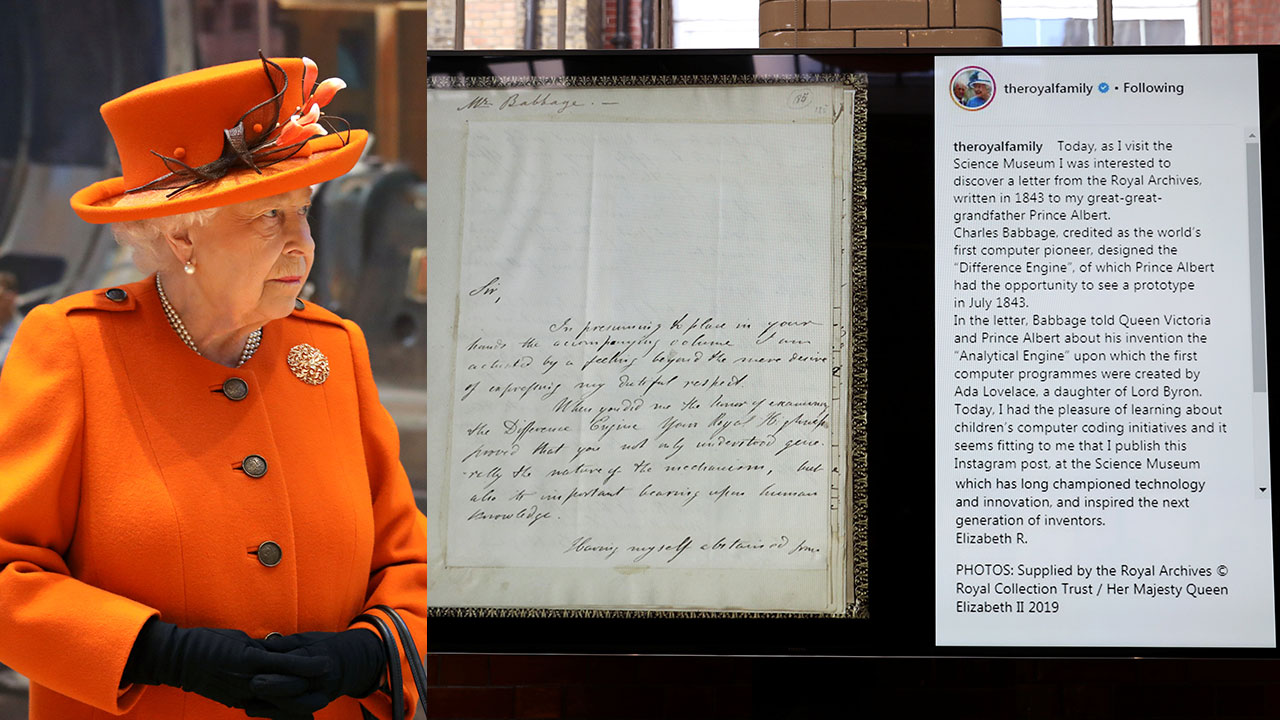 Mr. Babbage. —
Sir,
In presuming to place in your
hands the accompanying volume I am
actuated by a feeling beyond the mere desire
of expressing my dutiful respect.
When you did me the honor of examining
the Difference Engine Your Royal Highness
proved that you not only understood gene-
rally the nature of the mechanism, but
also its important bearing upon human
knowledge.
Having myself abstained from
theroyalfamily • Following
theroyalfamily Today, as I visit the
Science Museum I was interested to
discover a letter from the Royal Archives,
written in 1843 to my great-great-
grandfather Prince Albert.
Charles Babbage, credited as the world's
first computer pioneer, designed the
“Difference Engine”, of which Prince Albert
had the opportunity to see a prototype
in July 1843.
In the letter, Babbage told Queen Victoria
and Prince Albert about his invention the
“Analytical Engine” upon which the first
computer programmes were created by
Ada Lovelace, a daughter of Lord Byron.
Today, I had the pleasure of learning about
children's computer coding initiatives and it
seems fitting to me that I publish this
Instagram post, at the Science Museum
which has long championed technology
and innovation, and inspired the next
generation of inventors.
Elizabeth R.
PHOTOS: Supplied by the Royal Archives ©
Royal Collection Trust / Her Majesty Queen
Elizabeth II 2019